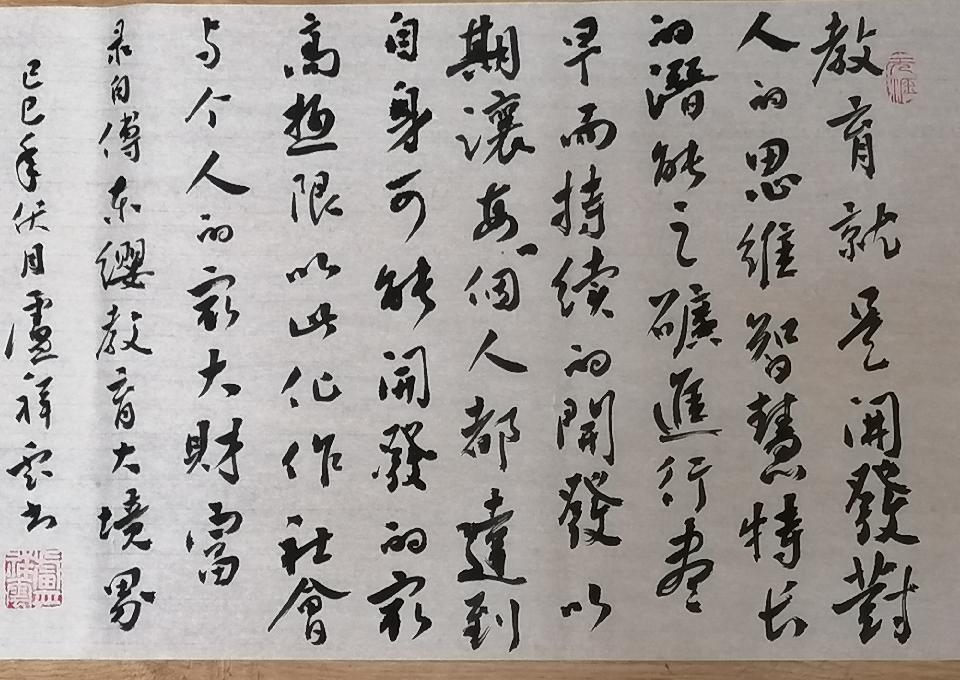 教育就是開發對
人的思維智慧特长
的潛能之礦進行盡
早而持续的開發以
期讓每一個人都達到
自身可能開發的最
高極限以此化作社會
与个人的最大財富
录自傅东缨教育大境界
己巳年伏月盧祥云书